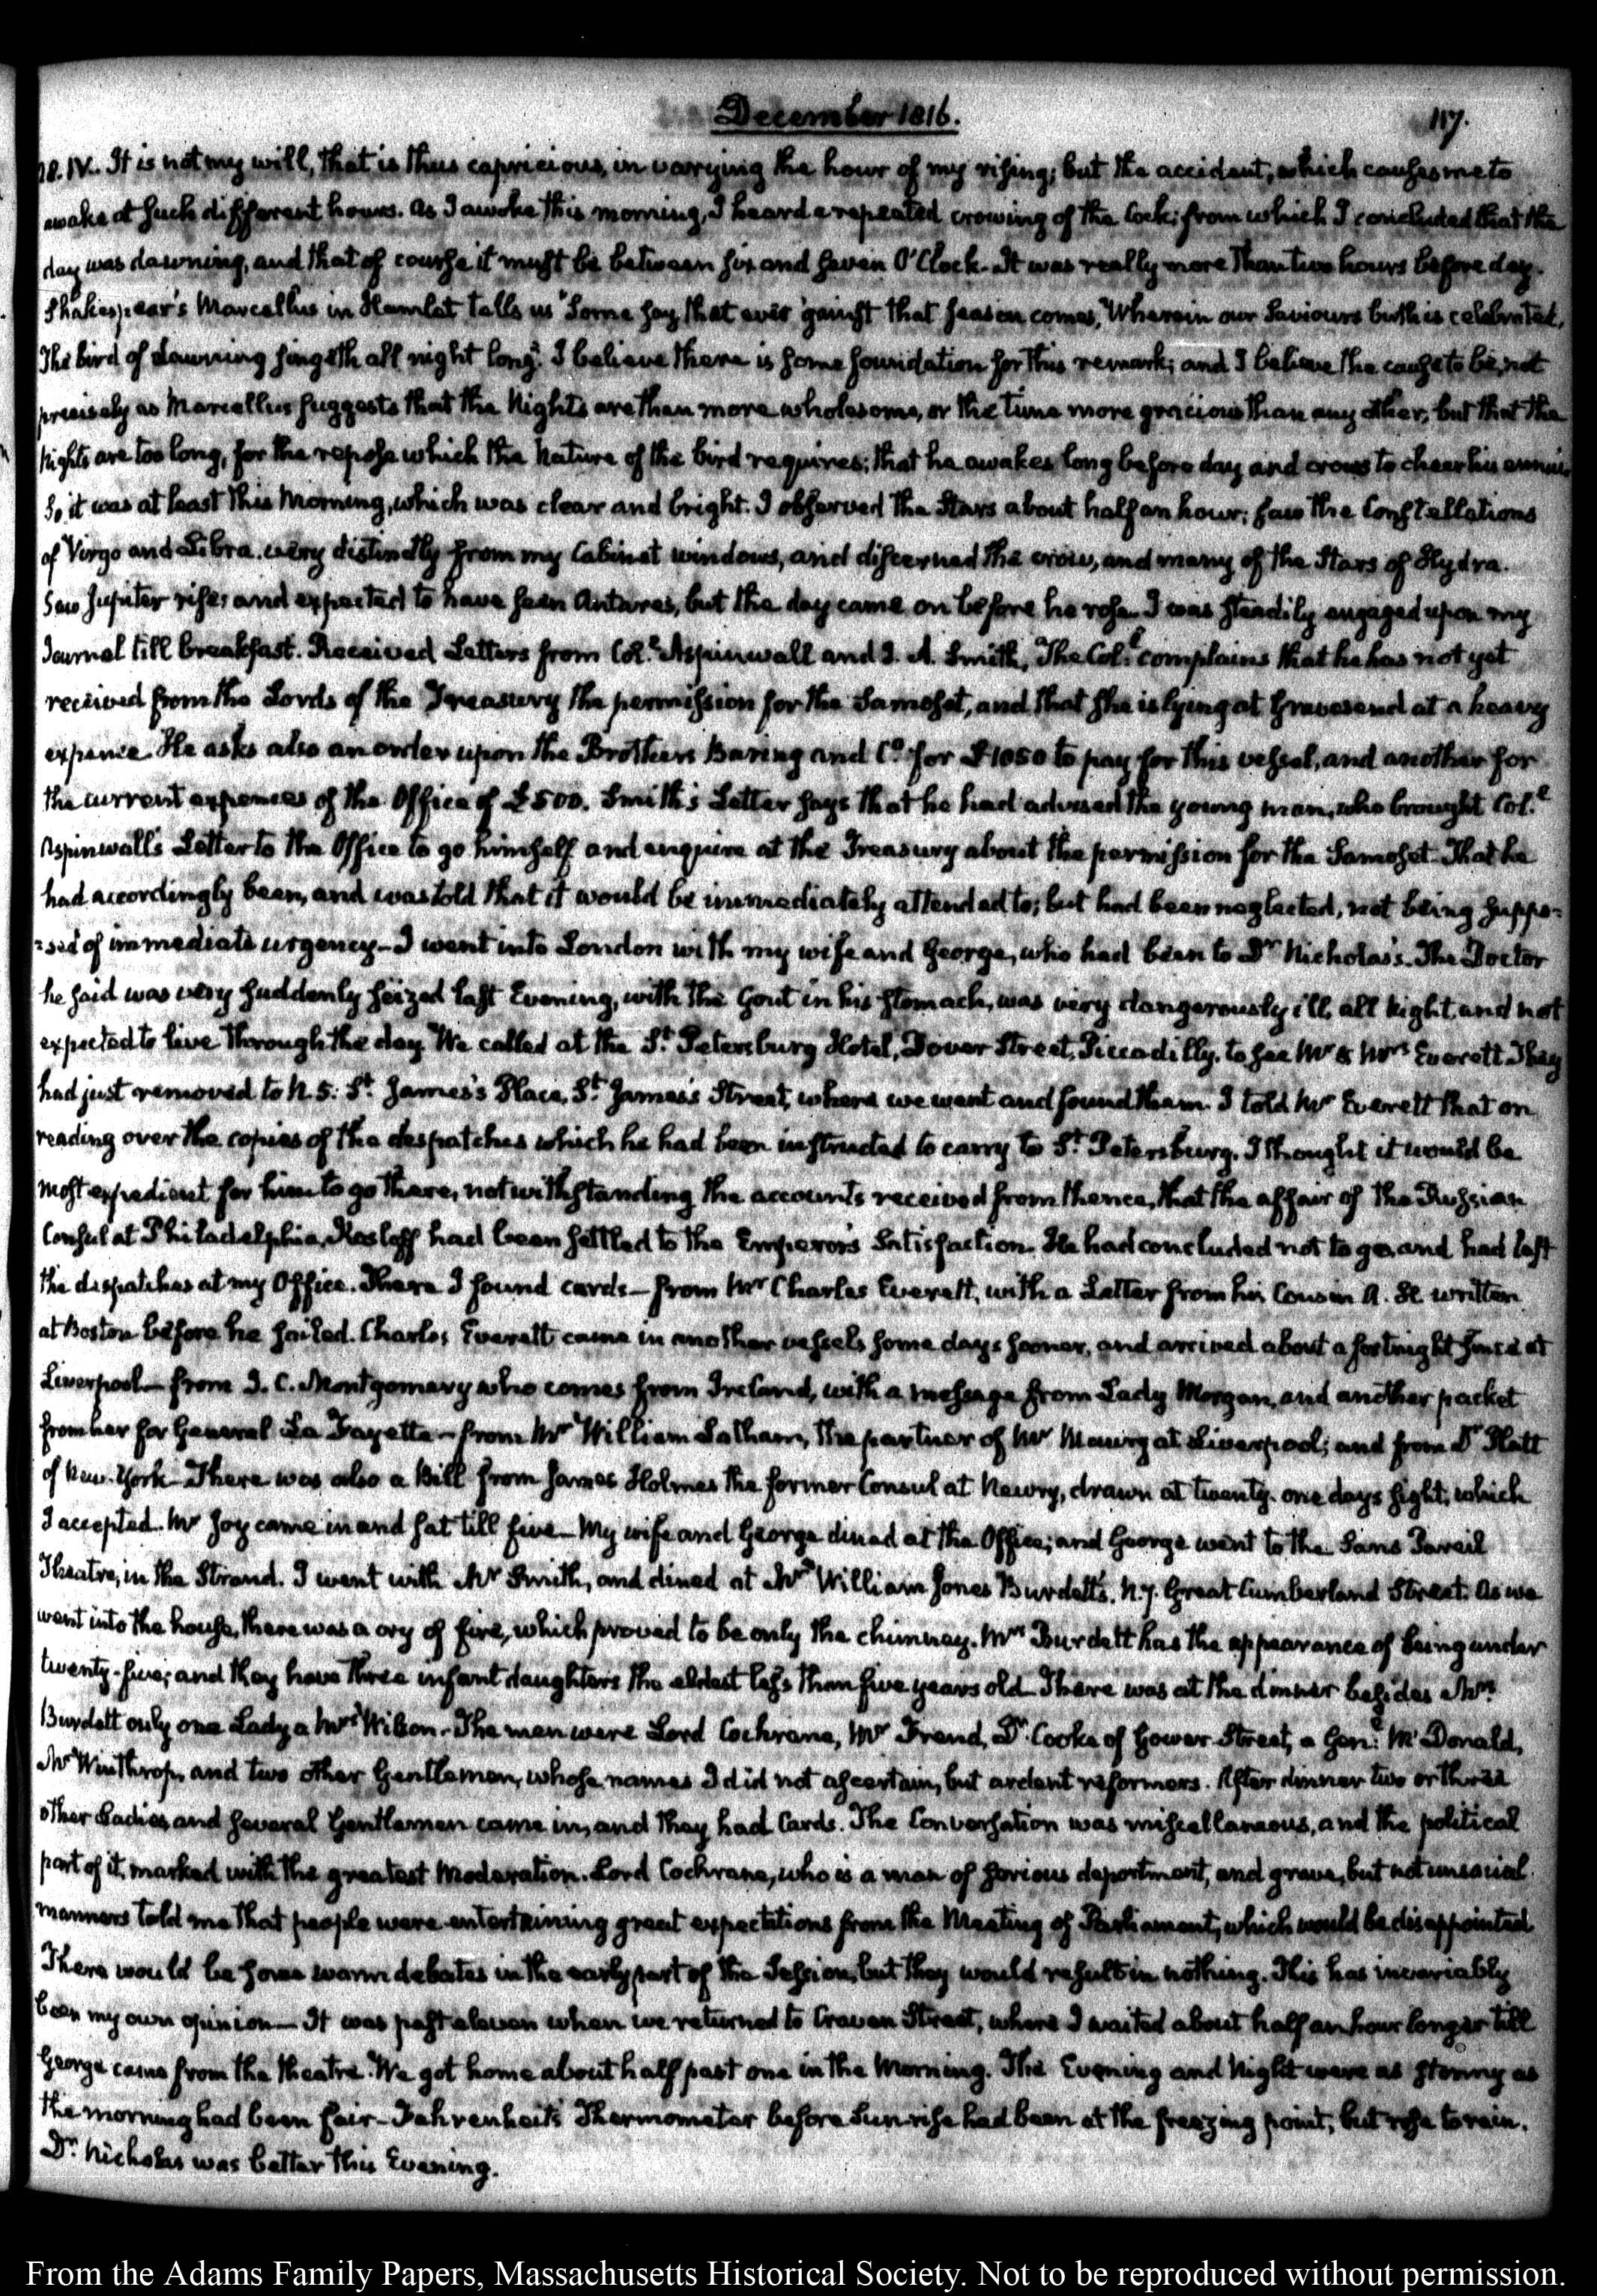 December 1816.
117.
18. IV. It is not my will, that is thus capricious, in varying the hour of my rising; but the accident, which causes me to
awake at such different hours. As I awoke this morning, I heard a repeated crowing of the Cock; from which I concluded that the
day was dawning, and that of course it must be between six and seven O'Clock. It was really more than two hours before day.
Shakespear's Marcellus in Hamlet tells us "Some say, that ever 'gainst that season comes, "Wherein our Saviours birth is celebrated,
The bird of dawning singeth all night long." I believe there is some foundation for this remark; and I believe the cause to be, not
precisely as Marcellus suggests that the Nights are then more wholesome, or the time more gracious than any other, but that the
Nights are too long, for the repose which the Nature of the bird requires; that he awakes long before day and crows to cheer his ennui.
So it was at least this Morning, which was clear and bright. I observed the Stars about half an hour; saw the Constellations
of Virgo and Libra very distinctly from my Cabinet windows, and discerned the crow, and many of the Stars of Hydra.
Saw Jupiter rise; and expected to have seen Antares, but the day came on before he rose. I was steadily engaged upon my
Journal till breakfast. Received Letters from Col.l Aspinwall and J. A. Smith, The Col.l complains that he has not yet
received from the Lords of the Treasury the permission for the Samoset, and that she is lying at Gravesend at a heavy
expence. He asks also an order upon the Brothers Baring and Co. for £1050 to pay for this vessel, and another for
the current expences of the Office of £500. Smith's Letter says that he had advised the young man, who brought Col.l
Aspinwall's Letter to the Office to go himself and enquire at the Treasury about the permission for the Samoset. That he
had accordingly been, and was told that it would be immediately attended to; but had been neglected, not being suppo=
=sed of immediate urgency—I went into London with my wife and George, who had been to Dr Nicholas's. The Doctor
he said was very suddenly seized last Evening, with the Gout in his stomach, was very dangerously ill, all Night, and not
expected to live through the day. We called at the St. Petersburg Hotel, Dover Street, Piccadilly, to see Mr & Mrs Everett. They
had just removed to N. 5: St. James's Place, St. James's Street, where we went and found them. I told Mr Everett that on
reading over the copies of the despatches which he had been instructed to carry to St. Petersburg, I thought it would be
most expedient for him to go there, notwithstanding the accounts received from thence, that the affair of the Russian
Consul at Philadelphia, Kosloff had been settled to the Emperor's Satisfaction. He had concluded not to go, and had left
the despatches at my Office. There I found cards—from Mr Charles Everett, with a Letter from his Cousin A. H. written
at Boston before he sailed. Charles Everett came in another vessels some days sooner, and arrived about a fortnight since at
Liverpool—from J. C. Montgomery who comes from Ireland, with a message from Lady Morgan, and another packet
from her for General La Fayette—from Mr William Latham, the partner of Mr Maury at Liverpool; and from Dr Platt
of New-York—There was also a Bill from James Holmes the former Consul at Newry, drawn at twenty-one days sight, which
I accepted. Mr Joy came in and sat till five—My wife and George dined at the Office; and George went to the Sans Pareil
Theatre, in the Strand. I went with Mr Smith, and dined at Mr William Jones Burdett's. N. 7. Great Cumberland Street. As we
went into the house, there was a cry of fire, which proved to be only the chimney. Mrs Burdett has the appearance of being under
twenty-five; and they have three infant daughters the eldest less than five years old. There was at the dinner besides Mrs
Burdett only one Lady a Mrs Wilson—The men were Lord Cochrane, Mr Frend, Dr. Cooke of Gower Street, a Gen.l McDonald,
Mr Winthrop, and two other Gentlemen, whose names I did not ascertain, but ardent reformers. After dinner two or three
other Ladies, and several Gentlemen came in, and they had Cards. The Conversation was miscellaneous, and the political
part of it, marked with the greatest Moderation. Lord Cochrane, who is a man of serious deportment, and grave, but not unsocial
manners told me that people were entertaining great expectations from the Meeting of Parliament, which would be disappointed
There would be some warm debates in the early part of the Session, but they would result in nothing. This has invariably
been my own opinion—It was past eleven when we returned to Craven Street, where I waited about half an hour longer till
George came from the theatre. We got home about half past one in the Morning. The Evening and Night were as stormy as
the morning had been fair—Fahrenheit's Thermometer before Sun-rise had been at the freezing point, but rose to rain.
Dr. Nicholas was better this Evening.
From the Adams Family Papers, Massachusetts Historical Society. Not to be reproduced without permission.